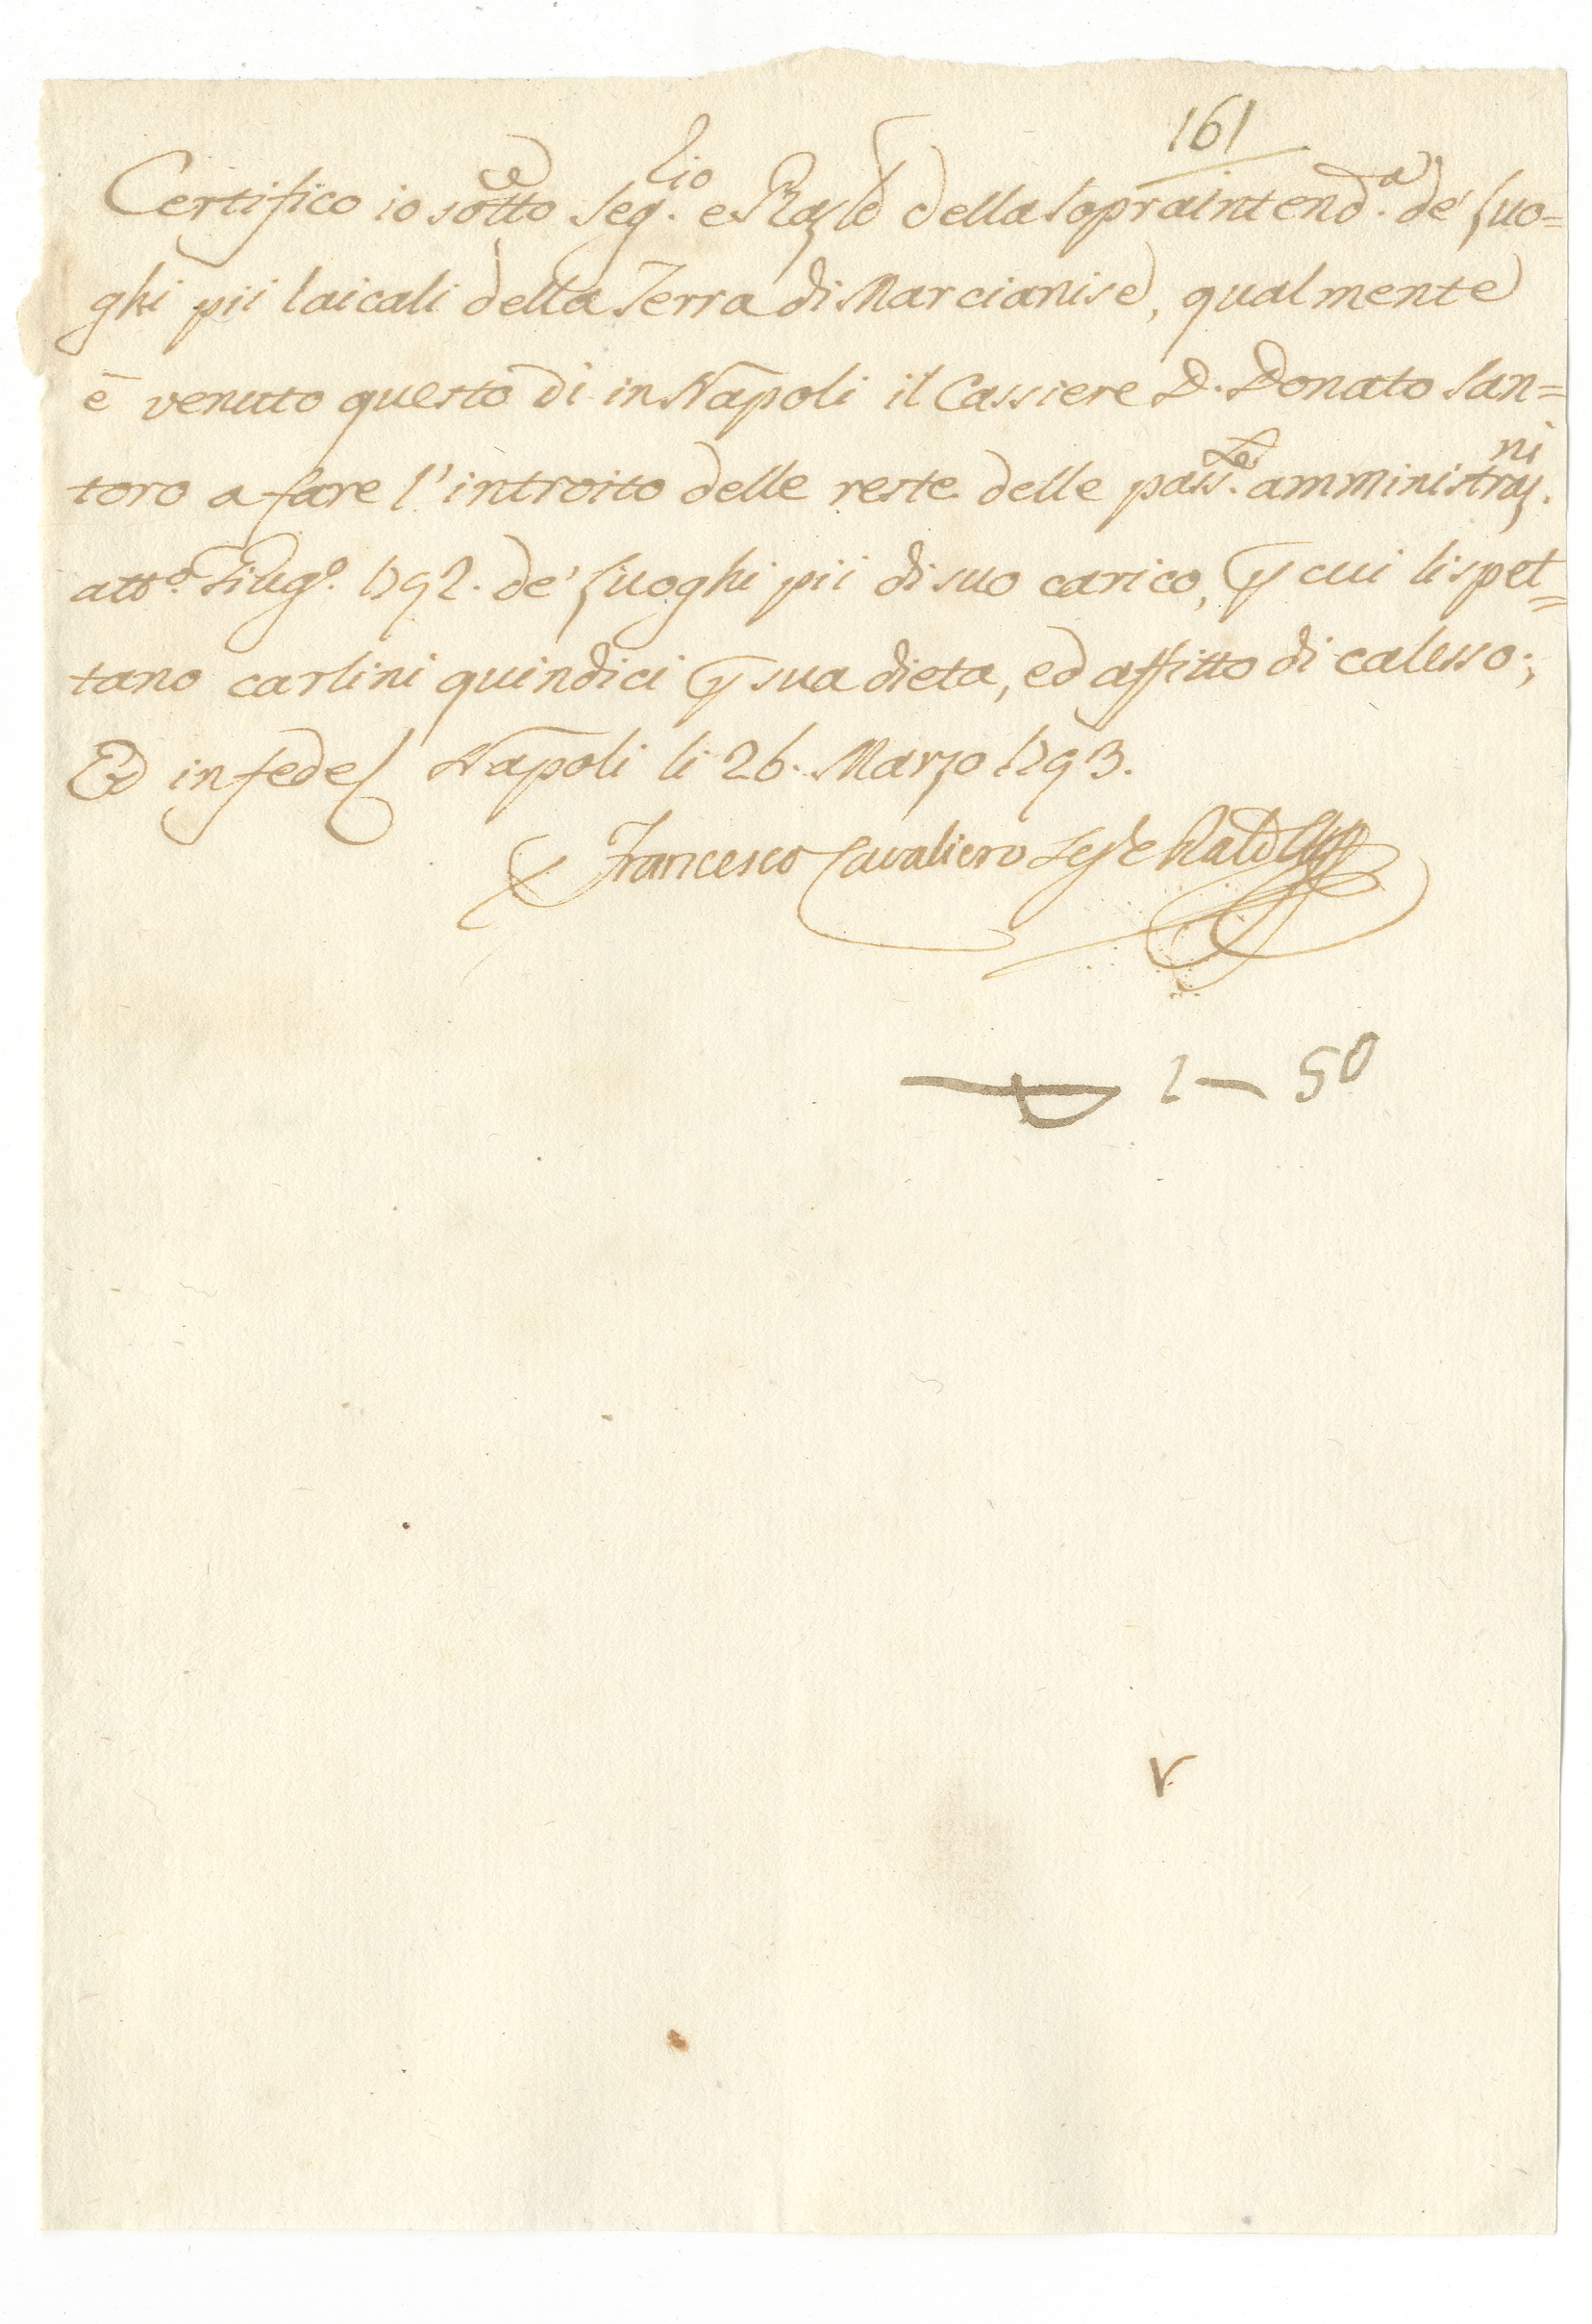 161
Certifico io sotto Seg.rio e Raz.le della Sopraintend.a de' Luo=
ghi pii laicali della Terra di Marcianise, qualmente
è venuto questo dì in Napoli il Cassiere D. Donato San=
toro a fare l'introito delle reste delle pass.te amministraz.ni
att.o Giug.o 1792. de' Luoghi pii di suo carico, p cui li spet=
tano carlini quindici p sua dieta, ed affitto di calesso;
Ed in fede Napoli li 26. Marzo 1793.
Francesco Cavaliero Seg.e
1 — 50
V.